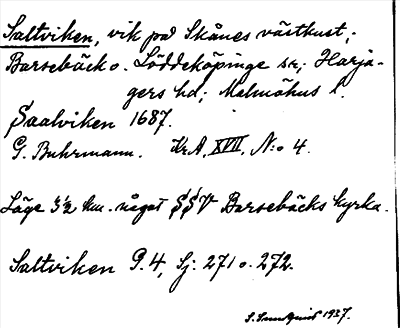 Saltviken, vik på Skånes västkust;
Barsebäck o. Löddeköpinge sn; Harja-
gers hd; Malmöhus l.
Saalviken 1687.
G. Buhrmann. Kr.A. XVII, N:o 4.
Läge 3½ km. något SSV Barsebäcks kyrka.
Saltviken P. 4, Sj: 271 o. 272.
S. Sundquist 1927.